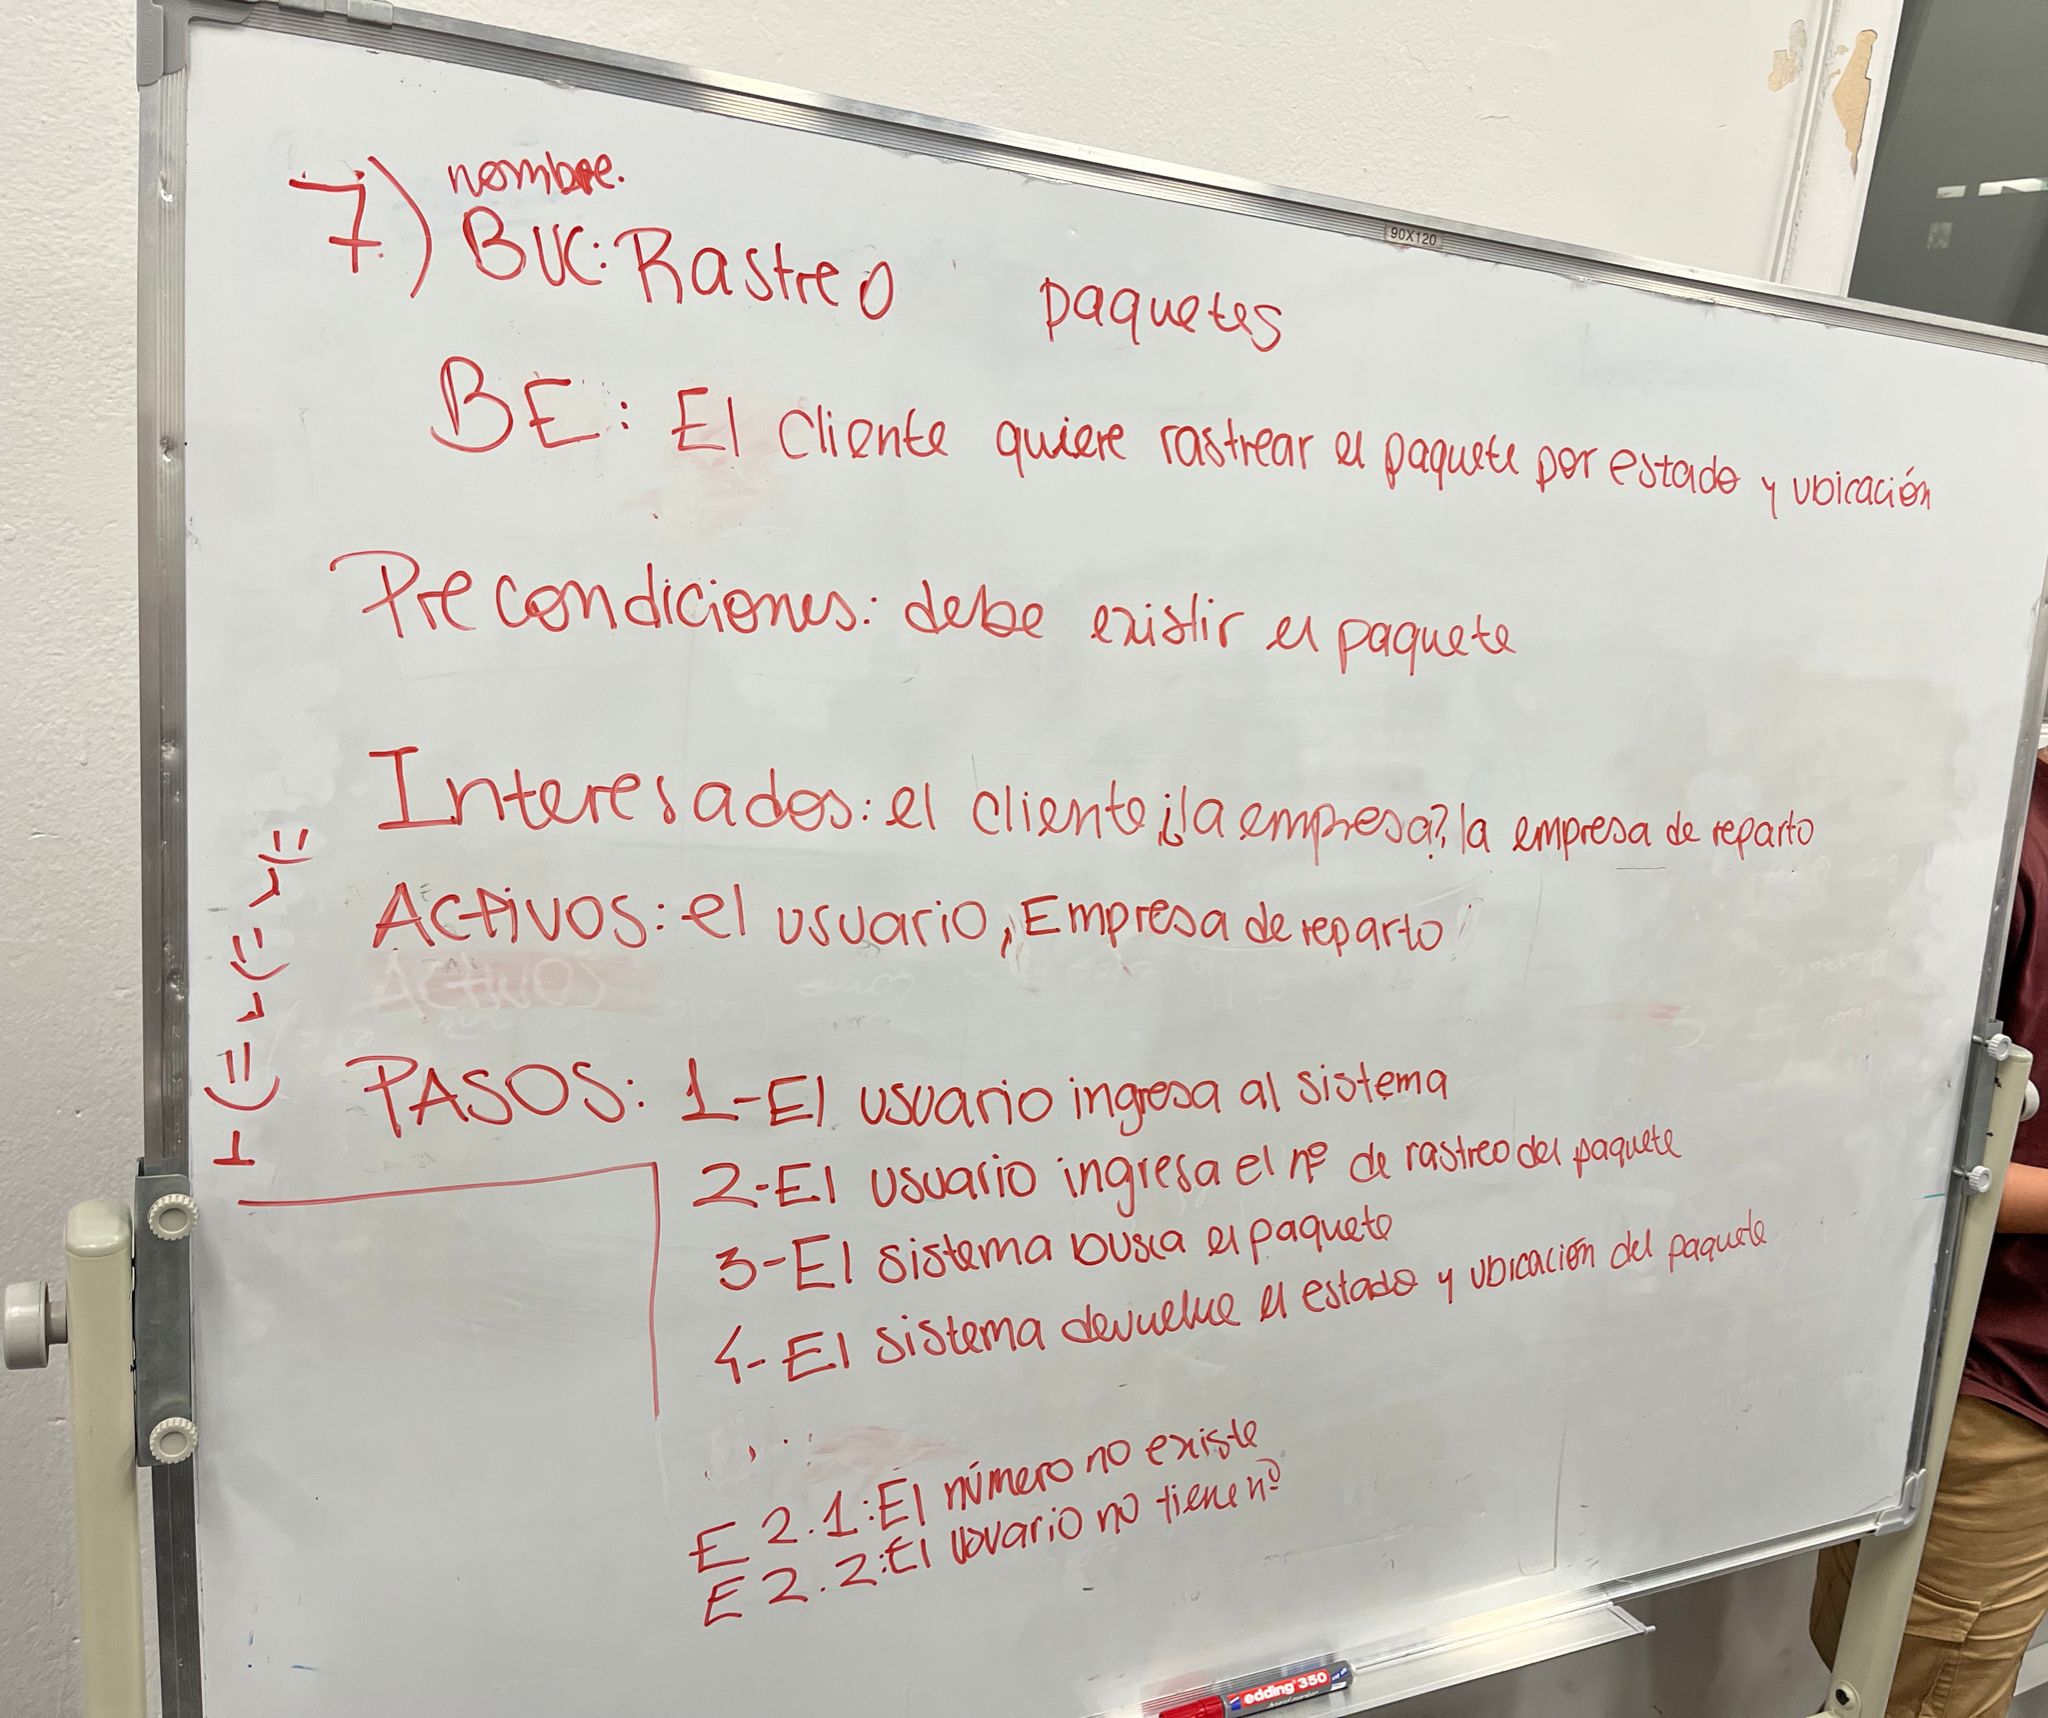 90X120
nombre.
7) BUC: Rastreo paquetes
BE: El cliente quiere rastrear el paquete por estado y ubicación
Precondiciones: debe existir el paquete
Interesados: el cliente ¿la empresa?, la empresa de reparto
Activos: el usuario, Empresa de reparto
ACTIVOS
PASOS: 1-El usuario ingresa al sistema
2-El usuario ingresa el nº de rastreo del paquete
3-El sistema busca el paquete
4-El sistema devuelve el estado y ubicación del paquete
...
E 2.1: El número no existe
E 2.2: El usuario no tiene nº
edding 350